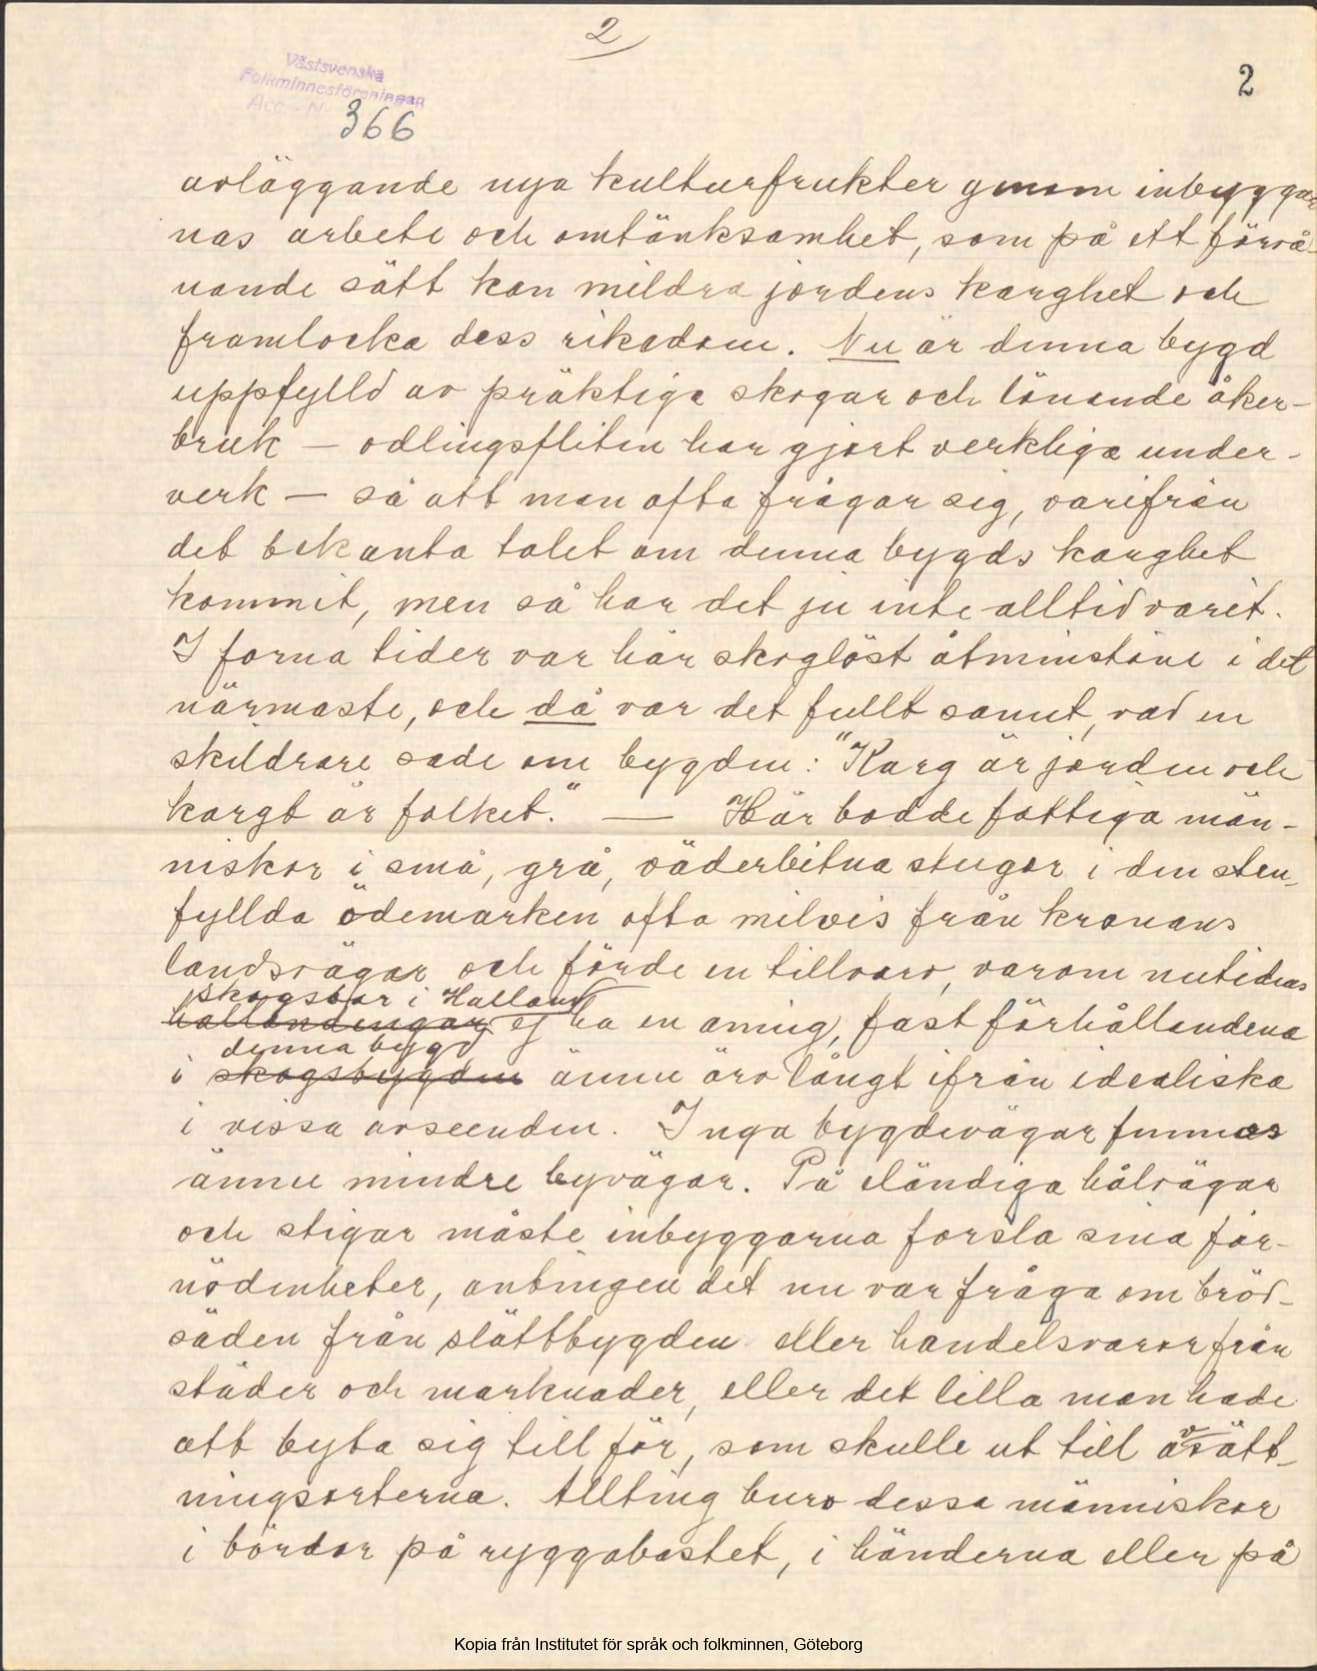 2
2
Västsvenska
Folkminnesföreningen
Acc. N
366
avläggande nya kulturfrukter genom inbyggar
nas arbete och omtänksamhet, som på ett förvå-
nande sätt kan mildra jordens karghet och
framlocka dess rikedom. Nu är denna bygd
uppfylld av präktiga skogar och lönande åker-
bruk – odlingsfliten har gjort verkliga under-
verk – så att man ofta frågar sig, varifrån
det bekanta talet om denna bygds karghet
kommit, men så har det ju inte alltid varit.
I forna tider var här skoglöst åtminstone i det
närmaste, och då var det fullt sannt, vad en
skildrare sade om bygden: "Karg är jorden och
kargt är folket." — Här bodde fattiga män-
niskor i små, grå, väderbitna stugor i den sten-
fyllda ödemarken ofta milvis från kronans
landsvägar och förde en tillvaro, varom nutidens
skogsbor i Halland
hallänningar ej ha en aning, fast förhållandena
denna bygd
i skogsbygden ännu äro långt ifrån idealiska
i vissa avseenden. Inga bygdevägar funnos
ännu mindre byvägar. På eländiga hålvägar
och stigar måste inbyggarna forsla sina för-
nödenheter, antingen det nu var fråga om bröd-
säden från slättbygden eller handelsvaror från
städer och marknader, eller det lilla man hade
att byta sig till för, som skulle ut till avsätt-
ningsorterna. Allting buro dessa människor
i bördor på ryggabastet, i händerna eller på
Kopia från Institutet för språk och folkminnen, Göteborg